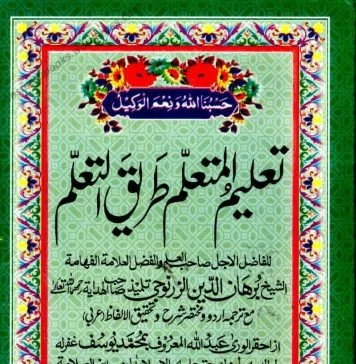 حَسْبُنَا اللهُ وَنِعْمَ الْوَكِيْلُ
تعلیمُ المتعلّم طَریقَ التعلّم
للفاضل الاجل صاحب العلم والفضل العلامة الفهامة
الشیخ بُرهان الدّین الزّرنوجی تلمیذ صاحب الهدایة رحمهما الله تعالی
مع ترجمہ اردو و مختصر شرح و تحقیق الالفاظ (عربی)
از احقر الوریٰ عبد الله المعروف محمّد یوسف غفرله